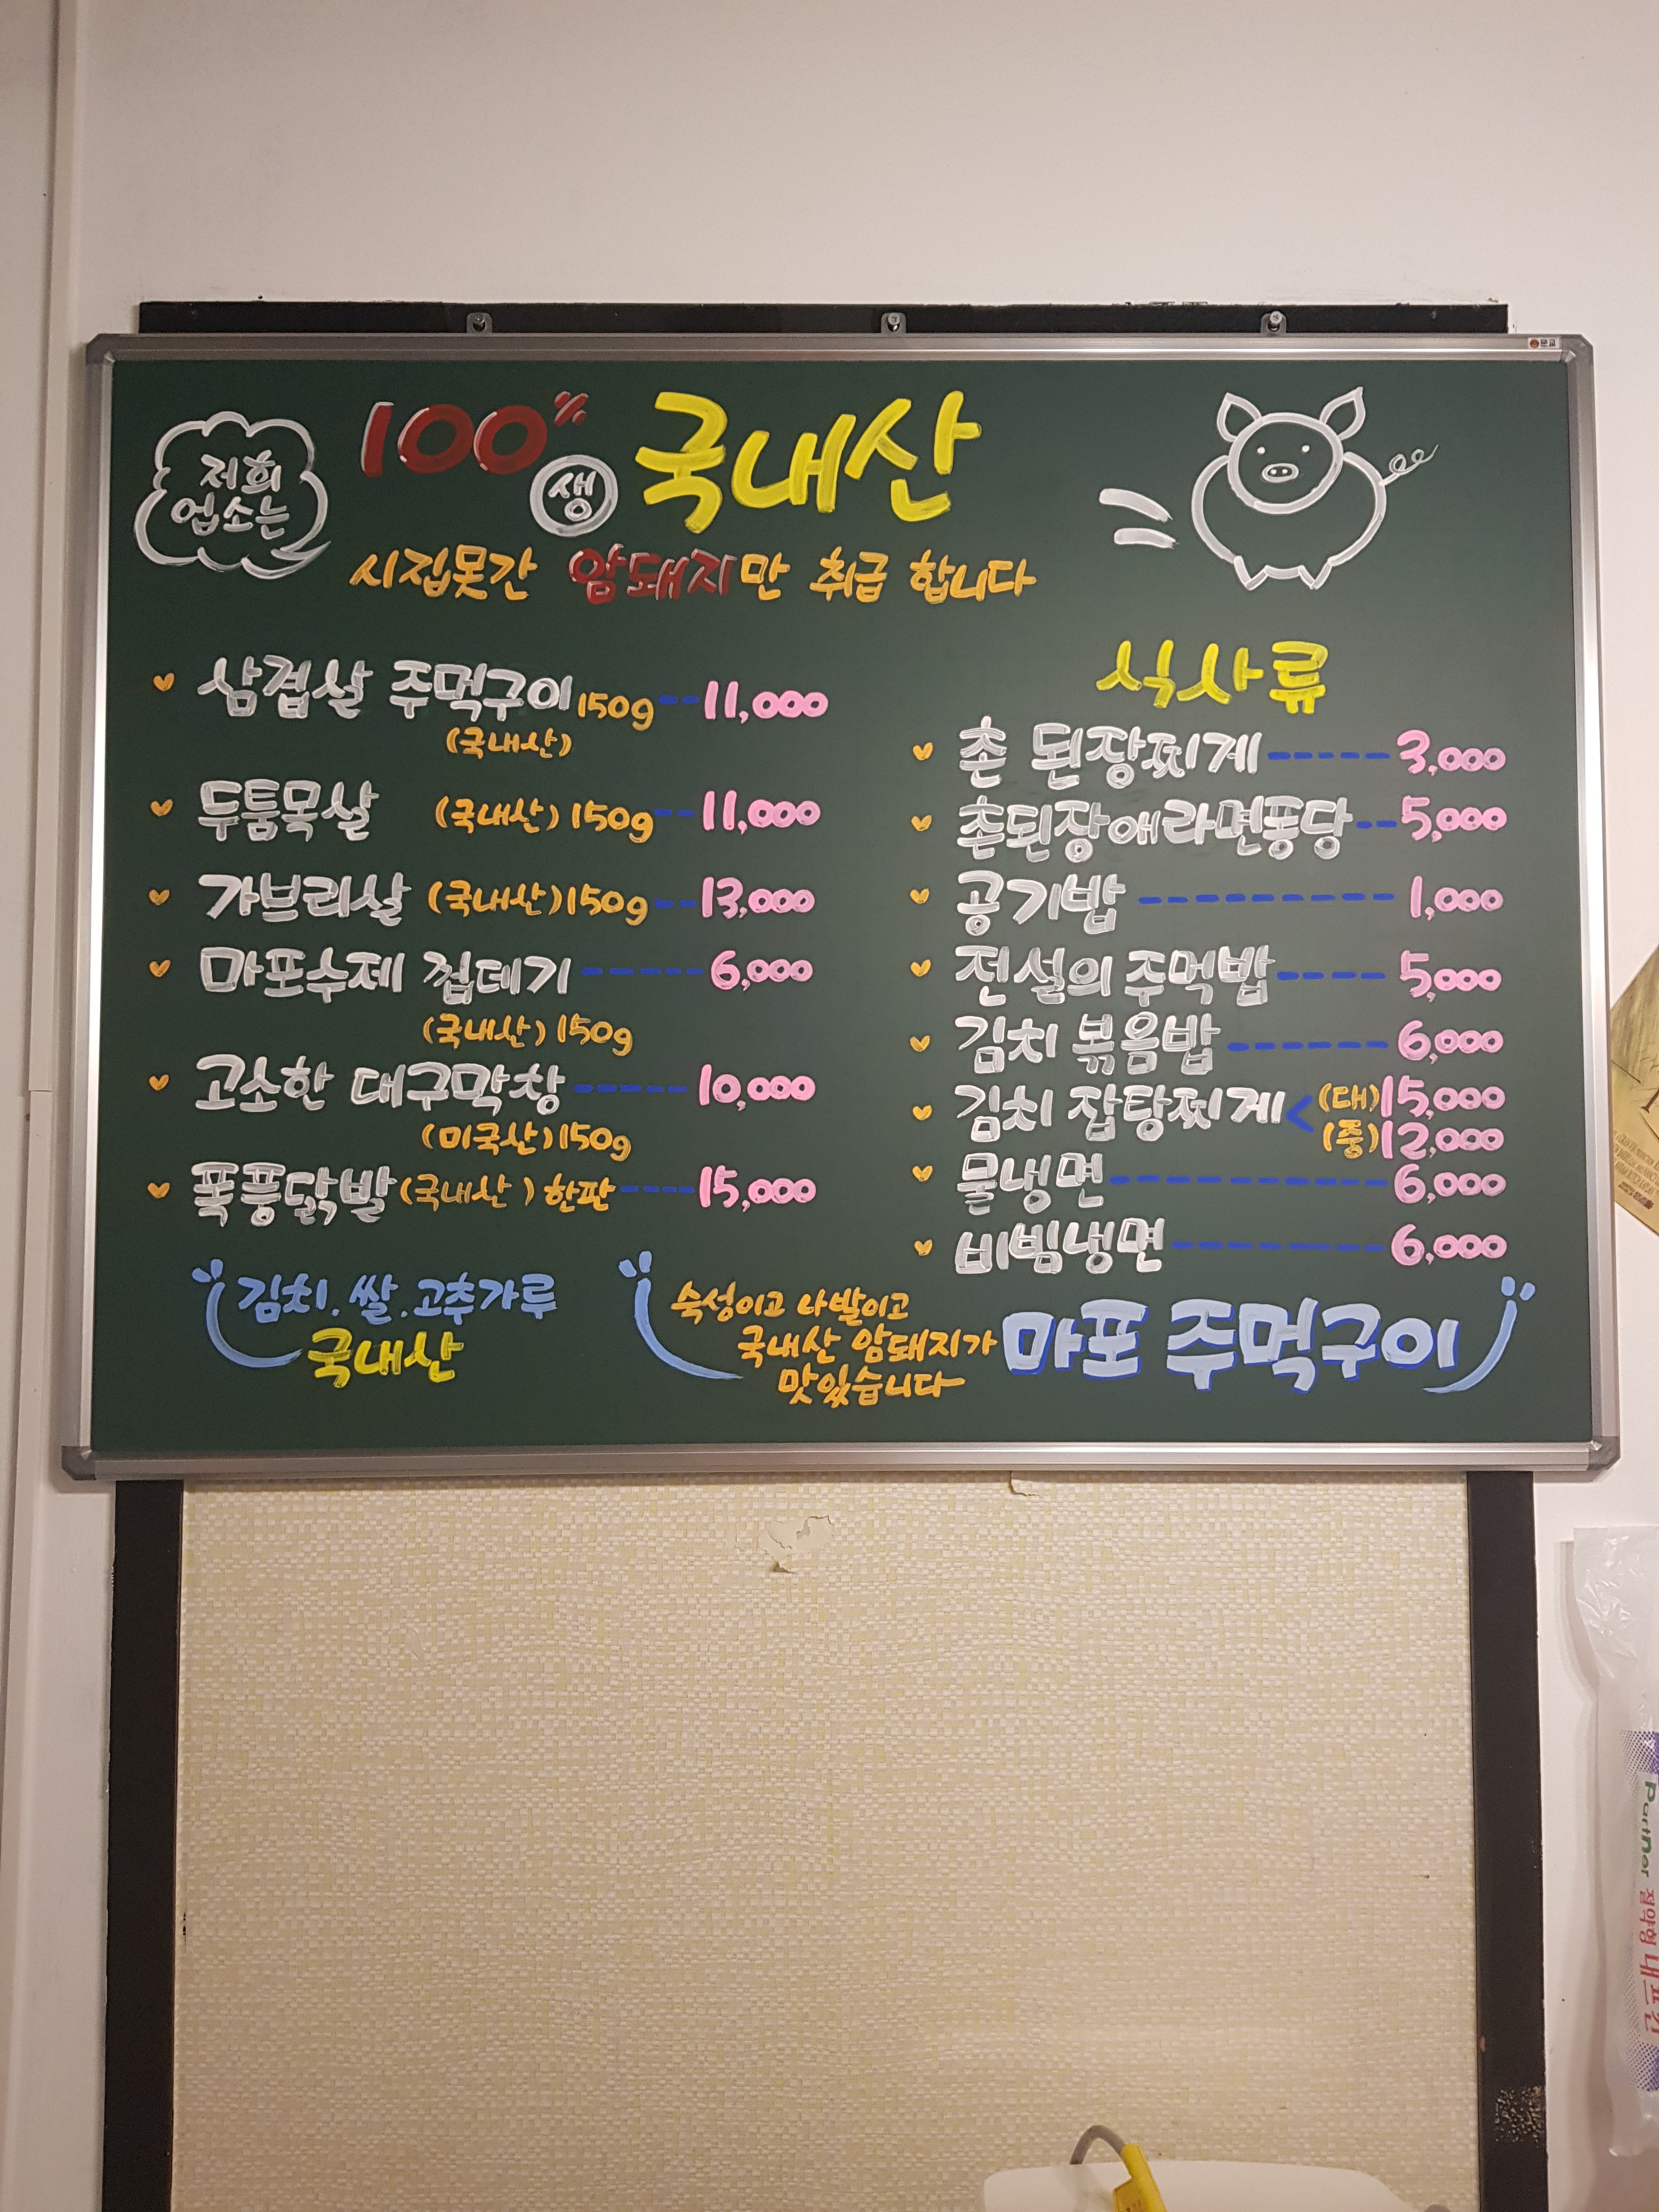 저희
업소는
100% 생 국내산
시집못간 암돼지만 취급 합니다
삼겹살 주먹구이 150g -- 11,000
(국내산)
두툼목살 (국내산) 150g -- 11,000
가브리살 (국내산) 150g -- 13,000
마포수제 껍데기 ------ 6,000
(국내산) 150g
고소한 대구막창 ------ 10,000
(미국산) 150g
폭풍닭발 (국내산) 한판 ---- 15,000
식사류
촌 된장찌게 ------ 3,000
촌된장애라면퐁당 -- 5,000
공기밥 ---------- 1,000
전설의 주먹밥 ---- 5,000
김치 볶음밥 ------ 6,000
김치 잡탕찌게 < (대) 15,000
(중) 12,000
물냉면 ------------ 6,000
비빔냉면 --------- 6,000
김치. 쌀. 고추가루
국내산
숙성이고 나발이고
국내산 암돼지가
맛있습니다
마포 주먹구이
Partner 절약형